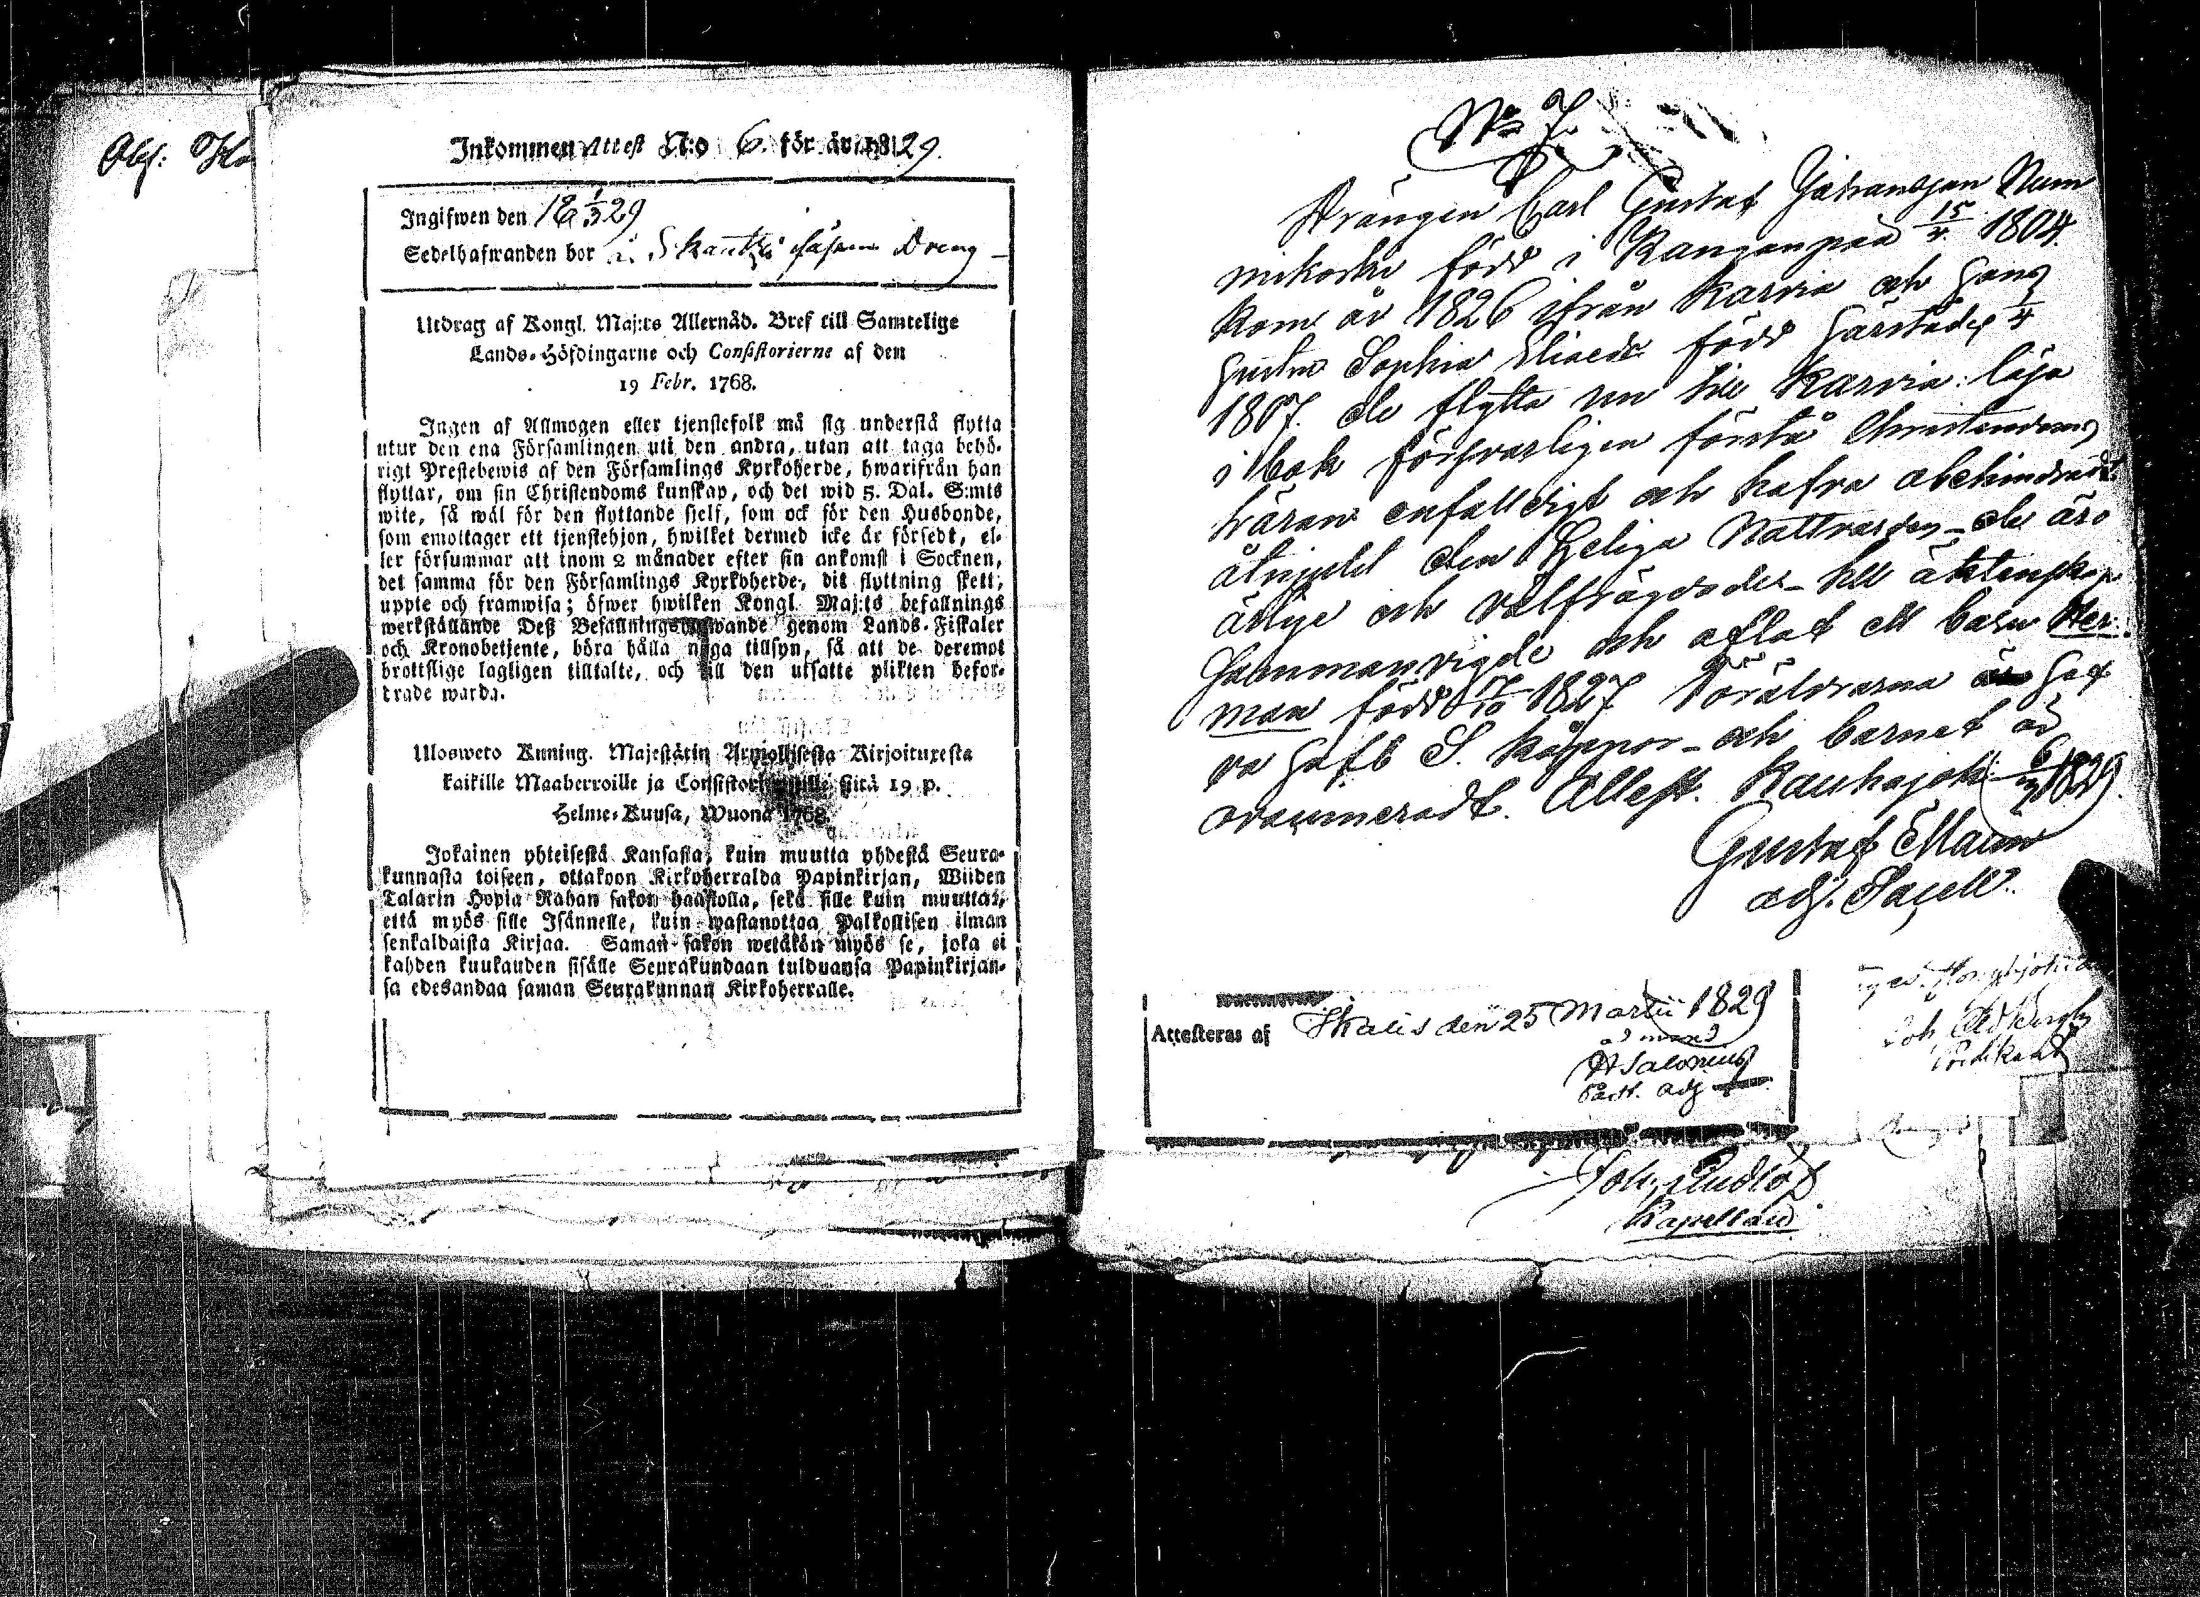 Abs:
Inkommen Attest N:o 6. för år 1829.
Ingifwen den 18 1/3 29
Sedelhafwanden bor i Dreng
Utdrag af Kongl. Maj:ts Allernåd. Bref till Samtelige
Lands-Höfdingarne och Consistorierne af den
19 Febr. 1768.
Ingen af Allmogen eller tjenstefolk må sig understå flytta
utur den ena Församlingen uti den andra, utan att taga behö-
rigt Prestebewis af den Församlings Kyrkoherde, hwarifrån han
flyttar, om sin Christendoms kunskap, och det wid 5. Dal. S:mts
wite, så wäl för den flyttande sjelf, som ock för den Husbonde,
som emottager ett tjenstehjon, hwilket dermed icke är försedt, el-
ler försummar att inom 2 månader efter sin ankomst i Socknen,
det samma för den Församlings Kyrkoherde, dit flyttning skett,
uppte och framwisa; öfwer hwilken Kongl. Maj:ts befallnings
werkställande Deß Befallningshafwande genom Lands-Fiskaler
och Kronobetjente, böra hålla noga tillsyn, så att de deremot
brottslige lagligen tilltalte, och till den utsatte plikten befor-
trade warda.
Ulosweto Kuning. Majestätin Armollisesta Kirjoituxesta
kaikille Maaherroille ja Consistoriumille siitä 19 p.
Helme-Kuusa, Wuona 1768.
Jokainen yhteisestä Kansasta, kuin muutta yhdestä Seura-
kunnasta toiseen, ottakoon Kirkoherralda Papinkirjan, Wiiden
Talarin Hopia Rahan sakon haastolla, sekä sille kuin muuttaa,
että myös sille Isännelle, kuin wastanottaa Palkollisen ilman
senkaldaista Kirjaa. Saman sakon wetäkön myös se, joka ei
kahden kuukauden sisälle Seurakundaan tulduansa Papinkirjan-
sa edesandaa saman Seurakunnan Kirkoherralle.
No 7.
Drängen Carl Gustaf Num
mikoski född i Kangonpää 15/4 1804.
Kom år 1826 ifrån Karvia och hans
hustru Sophia född härstädes 1/4
1807. de flytta nu till Karvia: läsa
i bok försvarligen förstå Christendoms
läran enfalldigt och hafva obehindradt
åtnjutit den Heliga Nattvarden - de äro
ärlige och välfrägdade - till äktenskap
Sammanvigde och aflat ett barn Her-
man född 17/10 1827 Föräldrarna haf
va haft S. koppor - och barnet är
vaccineradt. Attest. Kauhajoki 6/3 1829
Gustaf Malm
adj. Sacell.
Attesteras af Ikalis den 25 Martii 1829
ad mand
Salonius
Past. Adj
Joh.
Predikant
Joh. Lindlöf
Kapellan